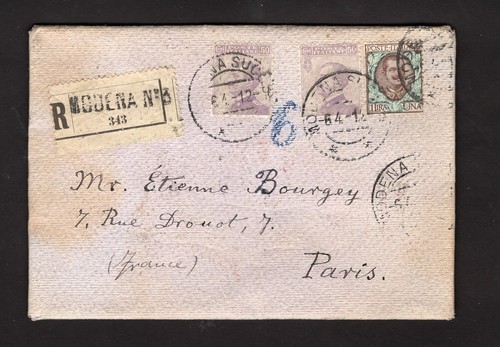 R
MODENA Nº 3
343
NA SUCC
6.4.12
50
50
MODENA S
6.4.12
POSTE ITALIANE
LIRA UNA
6
MODENA
Mr. Étienne Bourgey
7, Rue Drouot, 7.
(France)
Paris.